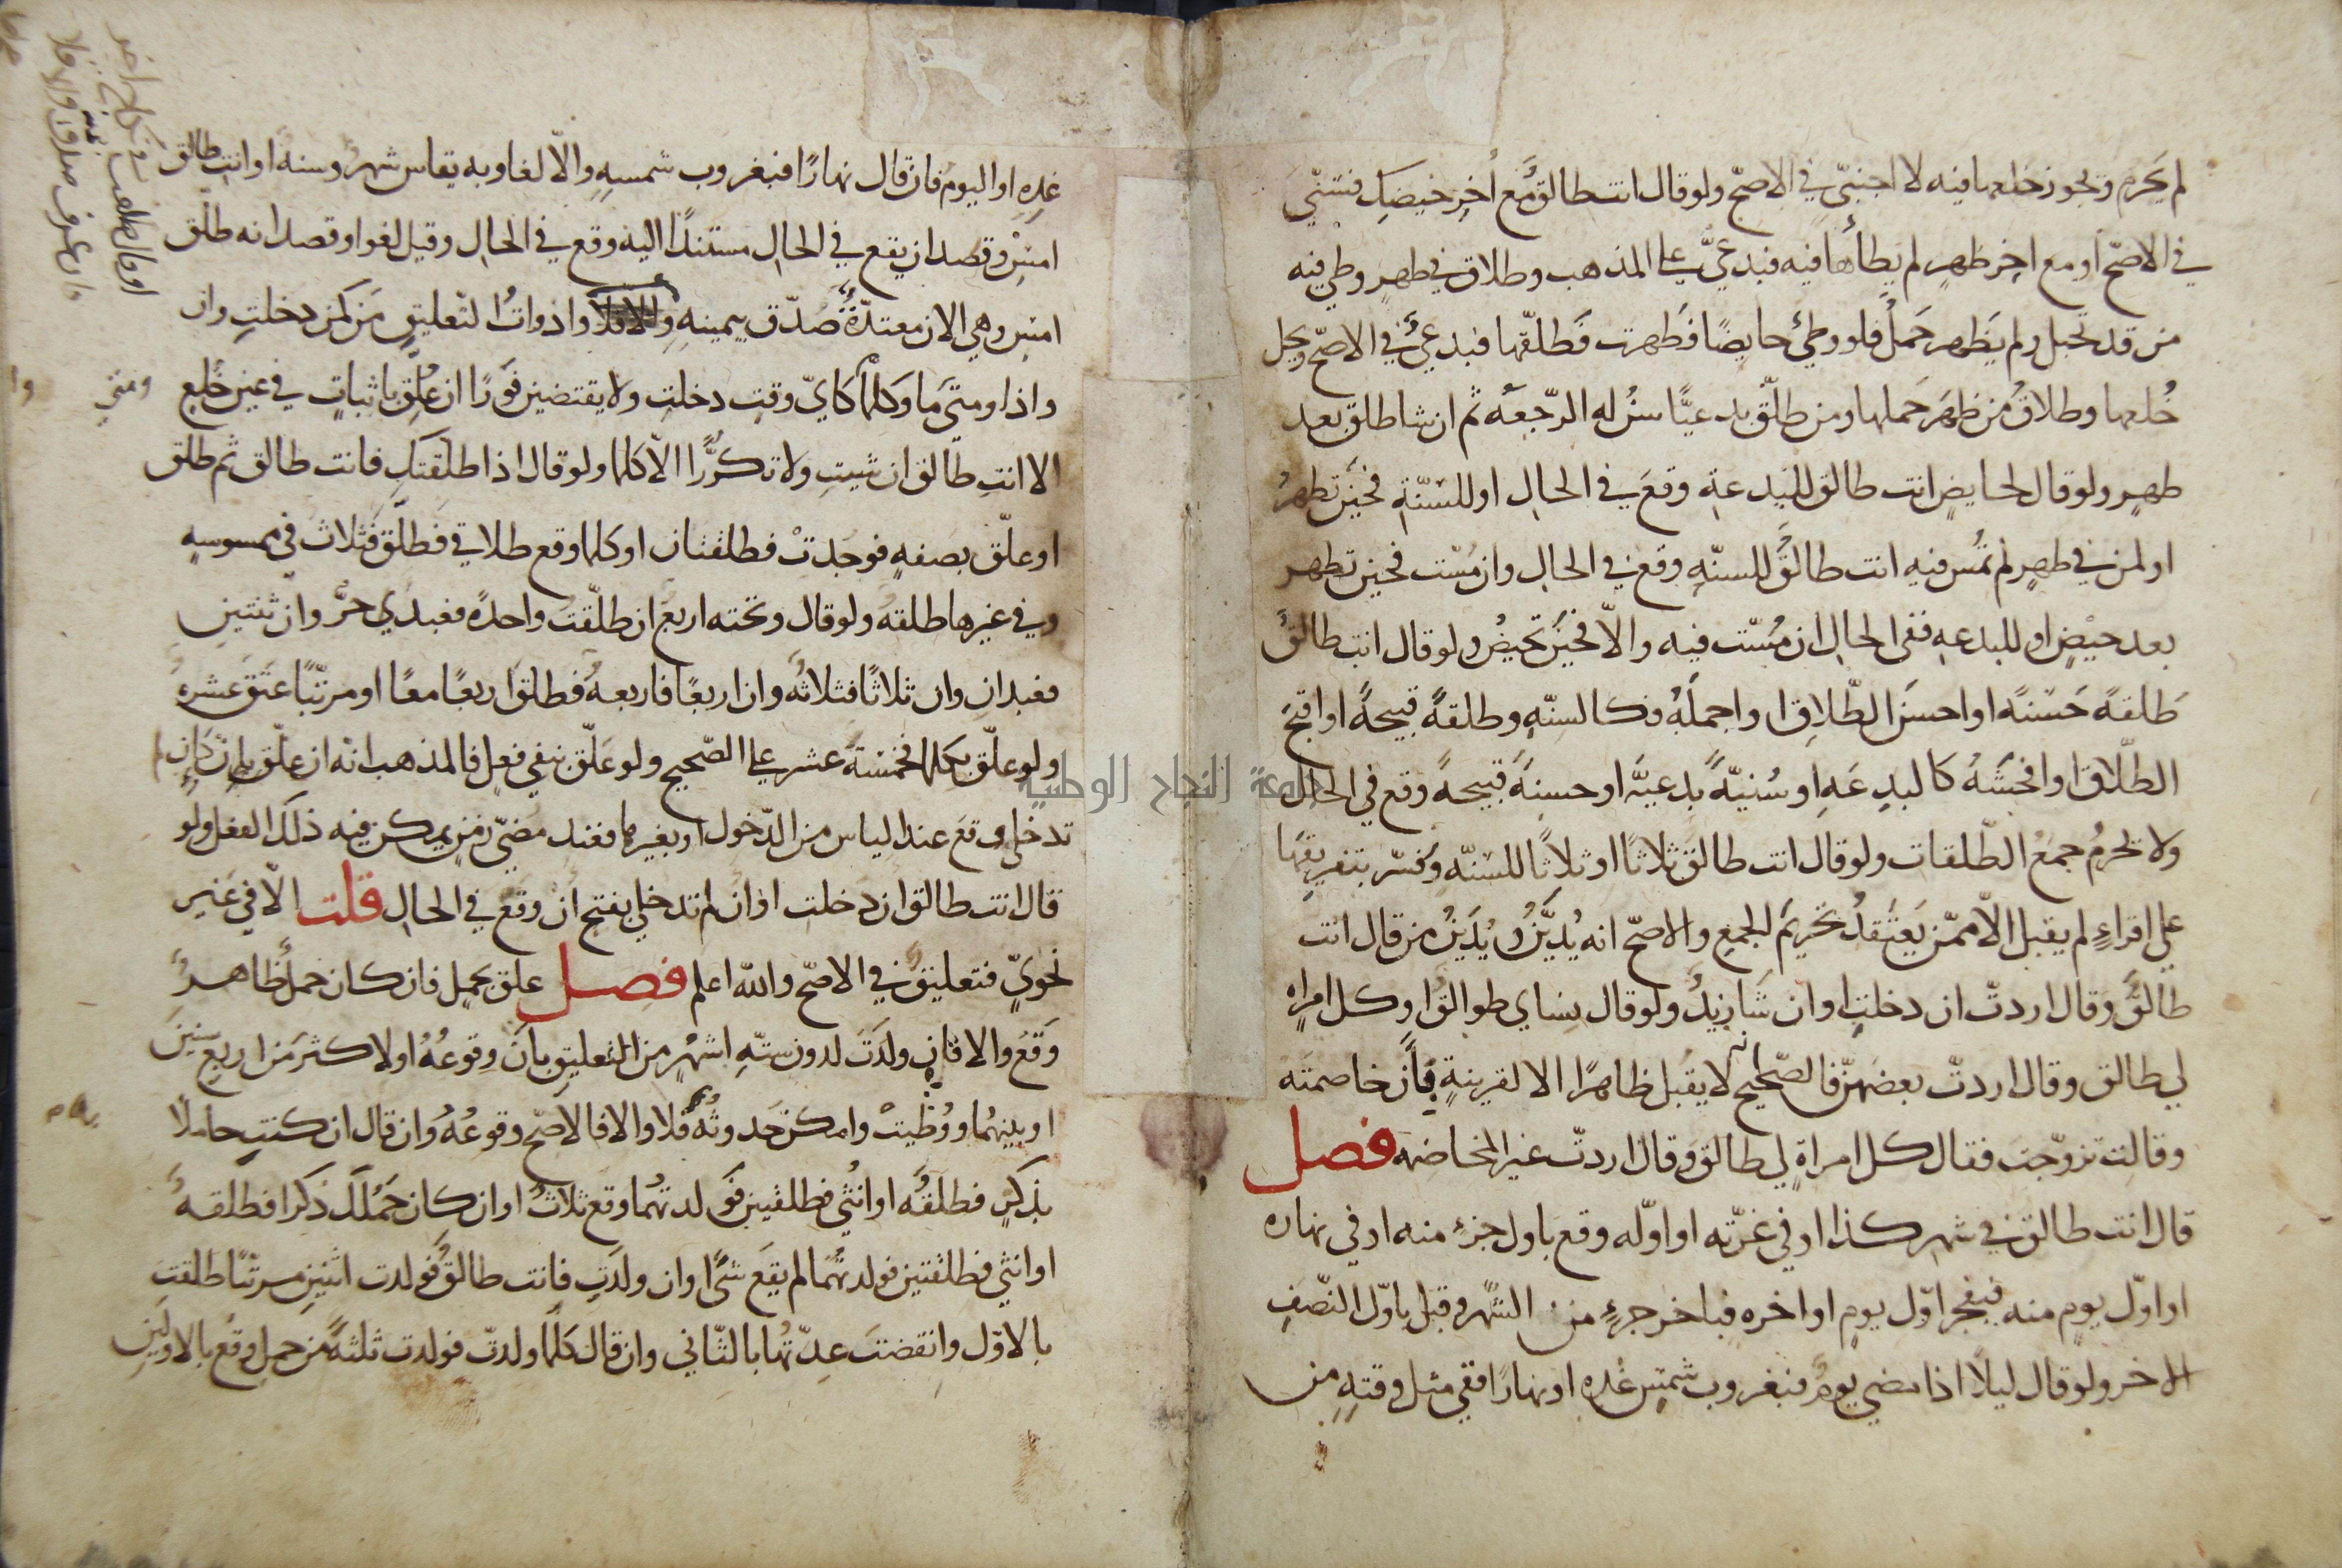 لم يحرم ويجوز خلعها فيه لا اجنبيّ في الاصحّ ولو قال انت طالق مع أخر حيضك فسنّيّ
في الاصحّ او مع اخر طهر لم يطأها فيه فبدعيّ على المذهب وطلاق في طهر وطي فيه
من قد تحبل ولم يظهر حمل فلو وطئ حايضًا فطهرت فطلّقها فبدعيّ في الاصحّ ويحل
خلعها وطلاق من ظهر حملها ومن طلّق بدعيًّا سن له الرّجعه ثم ان شا طلق بعد
طهر ولو قال لحايض انت طالق للبدعة وقع في الحال او للسنّة فحين تطهر
او لمن في طهر لم تمس فيه انت طالق للسنّه وقع في الحال وان مسّت فحين تطهر
بعد حيض او للبدعه ففي الحال ان مسّت فيه والاّ فحين تحيض ولو قال انت طالق
طلقة حسنة او احسن الطّلاق او اجمله فكالسنّه وطلقة قبيحة او اقبح
الطّلاق او افحشه كالبدعه او سنيّة بدعيّه او حسنة قبيحة وقع في الحال
ولا تحرم جمع الطّلقات ولو قال انت طالق ثلاثا او ثلاثا للسنّه وفسّر بتفريقها
على اقراء لم يقبل الاّ ممّن يعتقد تحريم الجمع والاصحّ انه يديّن ويديّن من قال انت
طالق وقال اردتّ ان دخلت او ان شا زيد ولو قال نساي طوالق او كل امراه
لي طالق وقال اردتّ بعضهنّ فالصّحيح انه لا يقبل ظاهرًا الا لقرينة بأن خاصمته
وقالت تزوّجت فقال كل امراة لي طالق وقال اردتّ غير المخاصمه فصل
قال انت طالق في شهر كذا او في غرّته او اوّله وقع باول جزء منه او في نهاره
او اوّل يوم منه فبفجر اوّل يوم او اخره فباخر جزء من الشّهر وقيل باوّل النّصف
الاخر ولو قال ليلا اذا مضي يوم فبغروب شمس غده او نهارًا ففي مثل وقته من
غده او اليوم فان قال نهارًا فبغروب شمسه والاّ لغا وبه يقاس شهر وسنه او انت طالق
امس وقصد ان يقع في الحال مستندًا اليه وقع في الحال وقيل لغو او قصد انه طلّق
امس وهي الان معتدّة صدّق بيمينه والا فلا وادوات التّعليق من كمن دخلت وان
واذا ومتي ما وكلما كايّ وقت دخلت ولا يقتضين فورًا ان علّق باثبات في غير خلع
الا انت طالق ان شيت ولا تكررًا الاّ كلما ولو قال اذا طلقتك فانت طالق ثم طلق
او علّق بصفه فوجدت فطلقتان او كلما وقع طلاقي فطلّق فثلاث في ممسوسه
وفي غيرها طلقه ولو قال وتحته اربع ان طلّقت واحدة فعبدي حرّ وان ثنتين
فعبدان وان ثلاثًا فثلاثه وان اربعًا فاربعه فطلق اربعًا معًا او مرتّبًا عتق عشره
ولو علّق بكلما فخمسة عشر على الصّحيح ولو علّق بنفي فعل فالمذهب انه ان علّق بان كان
تدخلي وقع عند الياس من الدّخول او بغيرها فعند مضيّ زمن يمكن فيه ذلك الفعل ولو
قال انت طالق ان دخلت او ان لم تدخلي بفتح أن وقع في الحال قلت الاّ في غير
نحويّ فتعليق في الاصحّ والله اعلم فصل علق بحمل فان كان حمل ظاهر
وقع والا فان ولدت لدون ستّه اشهر من التعليق بان وقوعه او لاكثر من اربع سنين
او بينهما ووطيت وامكن حدوثه فلا والا فالاصحّ وقوعه وان قال ان كنت حاملا
بذكر فطلقه او انثي فطلقتين فولدتهما وقع ثلاث او ان كان حملك ذكرا فطلقه
او انثي فطلقتين فولدتهما لم يقع شيًا وان ولدت فانت طالق فولدت اثنين مرتبا طلقت
بالاوّل وانقضت عدّتها بالثّاني وان قال كلّما ولدتّ فولدت ثلثة من حمل وقع بالاولين
جامعة النجاح الوطنية